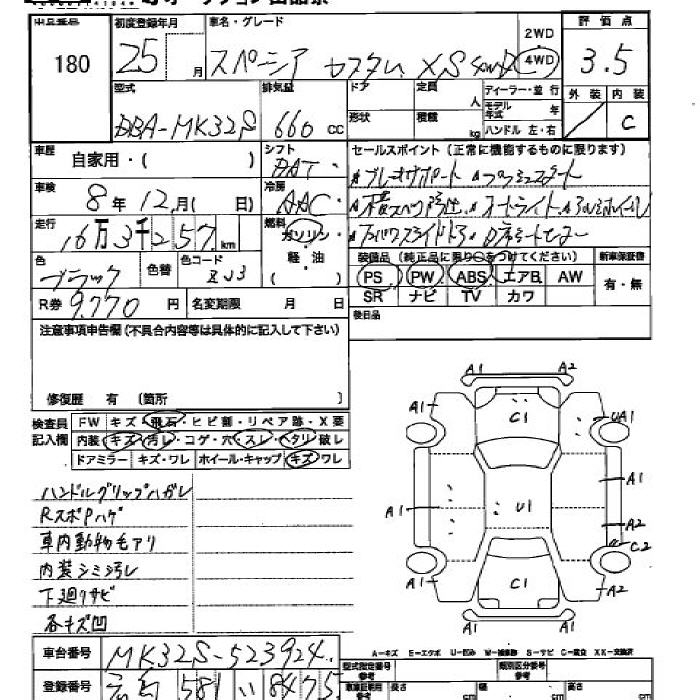 180
初度登録年月
25 月
車名・グレード
スペーシア カスタム XS 4WD
2WD
4WD
評価点
3.5
外装 内装
C
型式
DBA-MK32S
排気量
660 cc
ドア
形状
定員 人
積載 kg
ディーラー・並行
モデル年式 年
ハンドル 左・右
車歴
自家用・(
シフト
車検
8年12月( 日)
冷房
AAC
走行
16万3千257km
燃料
ガソリン・
軽・油
( )
セールスポイント(正常に機能するものに限ります)
色
ブラック
色替
色コード
ZJ3
装備品(純正品に限り○をつけてください)
PS PW ABS エアB AW
SR ナビ TV カワ
新車保証書
有・無
R券 9,770円
名変期限 月 日
後日品
注意事項申告欄(不具合内容等は具体的に記入して下さい)
修復歴 有 〔箇所 〕
検査員記入欄
FW キズ・飛石・ヒビ割・リペア跡・X要
内装・キズ・汚レ・コゲ・穴・スレ・ヘタリ・破レ
ドアミラー キズ・ワレ ホイール・キャップ キズ・ワレ
ハンドルグリップハガレ
RスポPハゲ
車内動物毛アリ
内装シミ汚レ
下廻リサビ
各キズ凹
A1 A2
A1 C1 UA1
A1
A1 U1
A2
C2
A1 C1 A2
A1 A1
A-キズ E-エクボ U-凹み W-補修跡 S-サビ C-腐立 XX-交換済
車台番号 MK32S-523924
登録番号 581 い 8475
型式指定番号 参考
類別区分番号 参考
車車証明用 参考 長さ cm 幅 cm 高さ cm